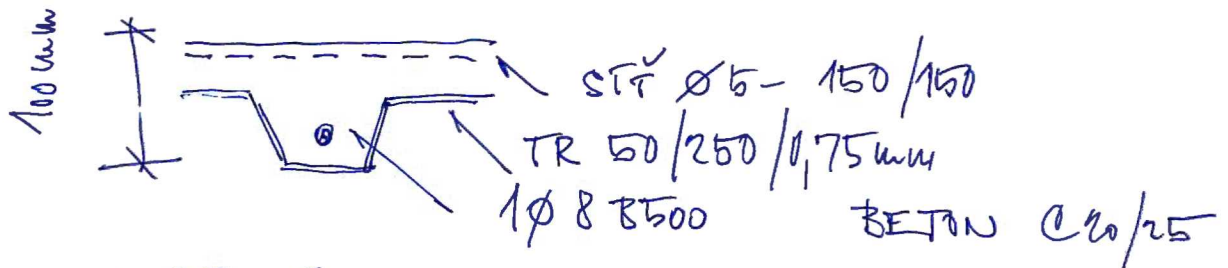 100 mm
STŤ Ø5- 150/150
TR 50/250/0,75mm
1Ø 8 B500
BETON C20/25